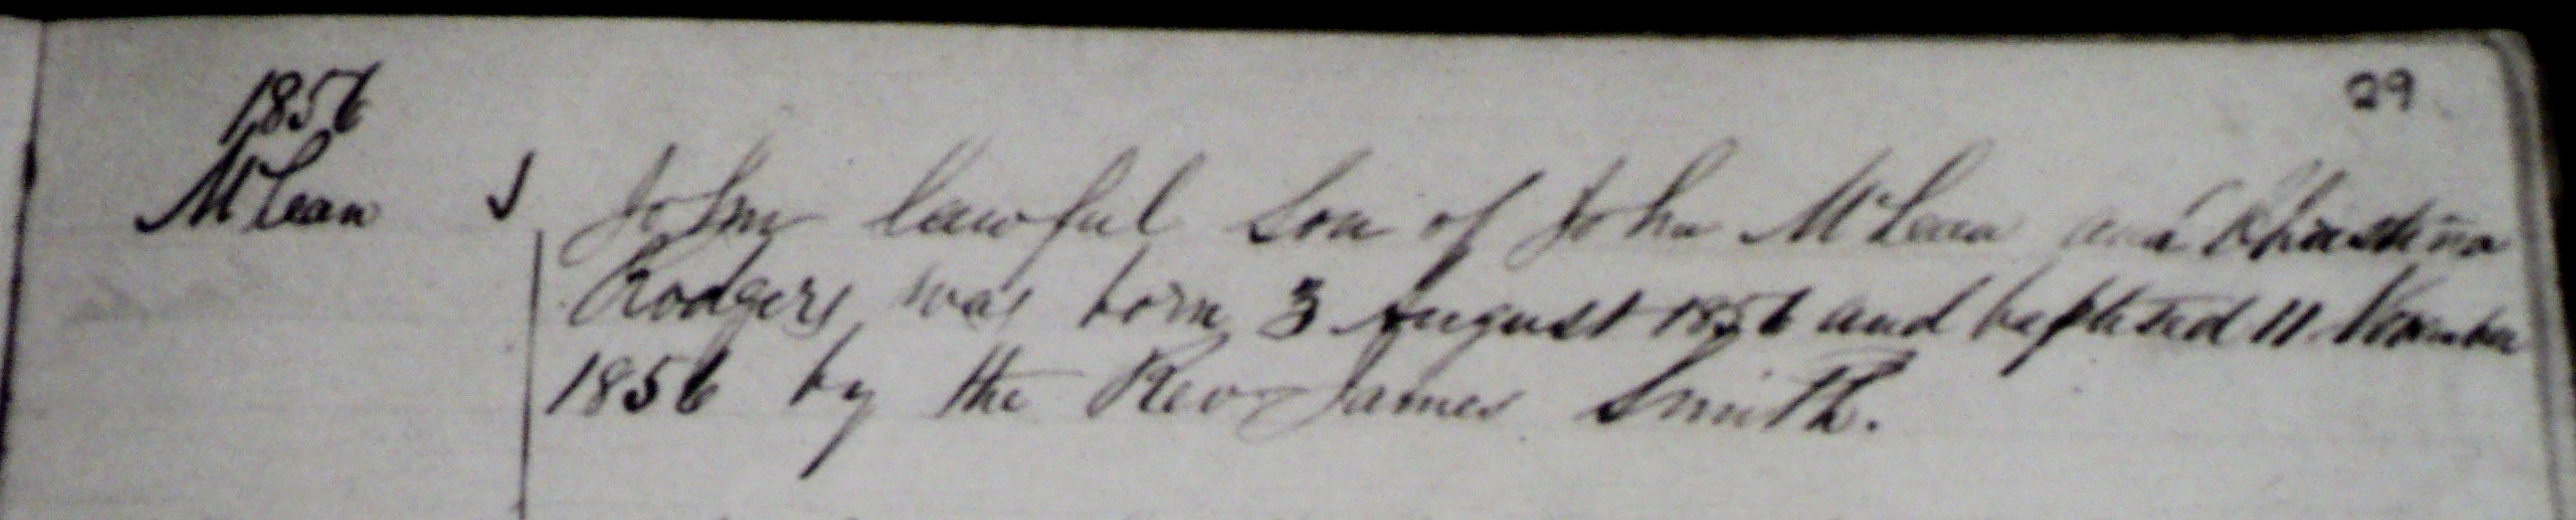 29
1856
McLean
John lawful Son of John McLean and Christina
Rodgers was born 3 August 1856 and baptised 11 November
1856 by the Rev James Smith.